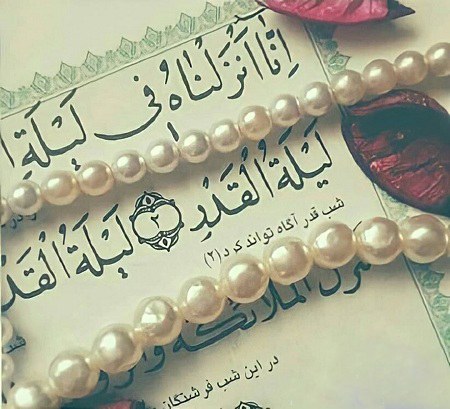 اِنّٰا اَنْزَلْنٰاهُ فى لَيْلَةِ
لَيْلَةُ الْقَدْرِ ﴿۲﴾ لَيْلَةُ الْقَدْ
شب قدر آگاه تواند کرد (۲)
الْمَلٰائِكَةُ وَالرُّو
در این شب فرشتگان